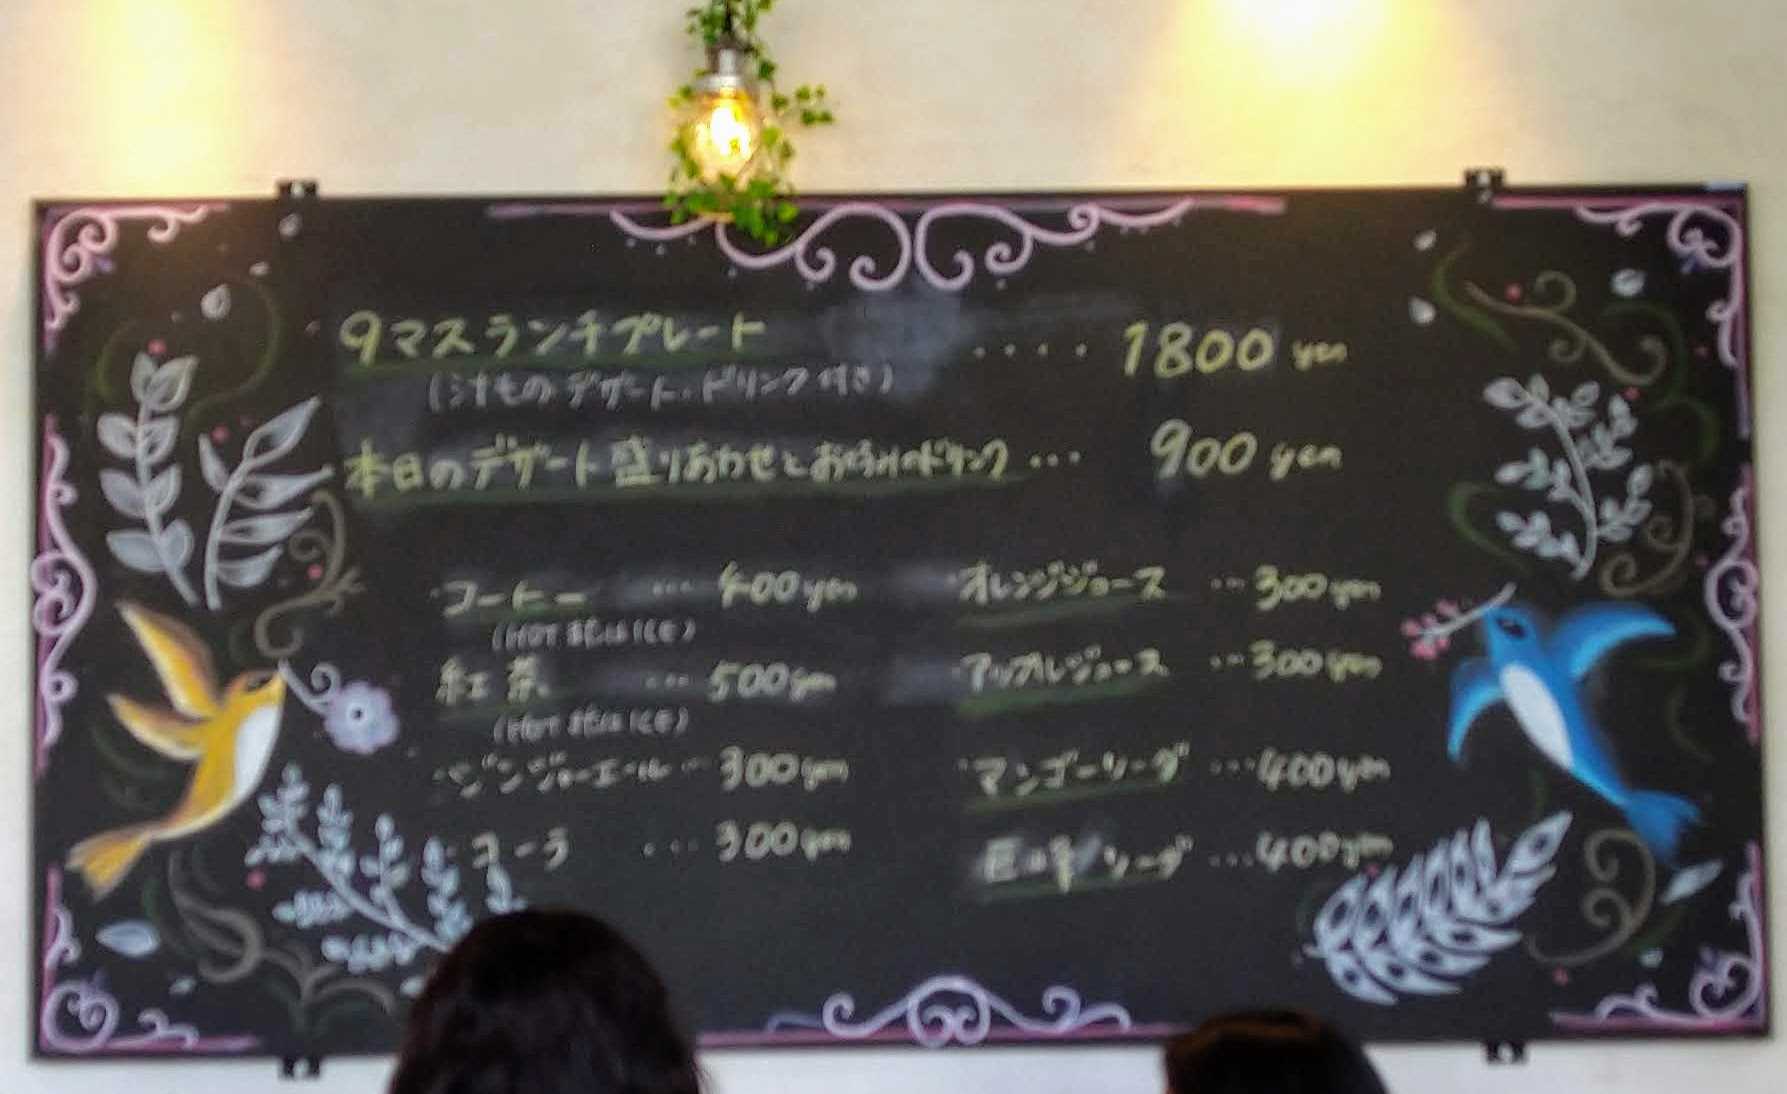 9マスランチプレート ････ 1800 yen
(汁もの デザート・ドリンク付き)
本日のデザート盛りあわせとお好みのドリンク ･･･ 900 yen
・コーヒー ･･･ 400yen
(HOT または ICE)
・紅茶 ･･･ 500yen
(HOT または ICE)
・ジンジャーエール ･･･ 300yen
・コーラ ･･･ 300yen
・オレンジジュース ･･･ 300yen
・アップルジュース ･･･ 300yen
・マンゴーソーダ ･･･ 400yen
巨峰ソーダ ･･･ 400yen